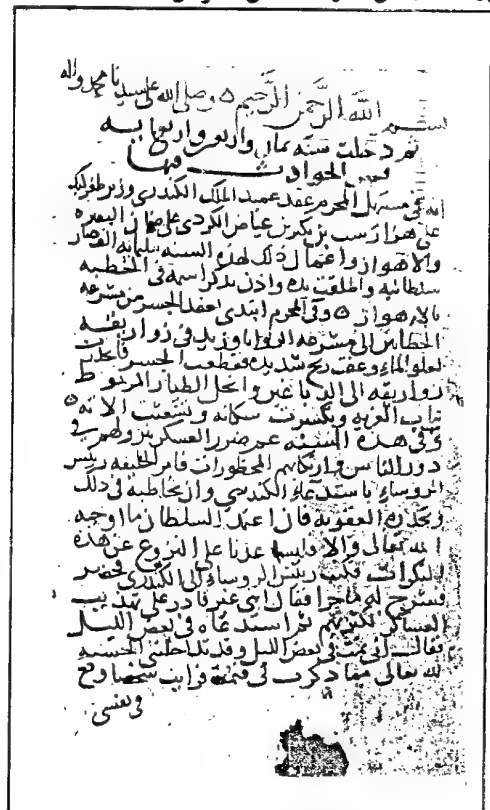 بسم الله الرحمن الرحيم وصلى الله على سيدنا محمد وآله
ثم دخلت سنه ثمان واربعين واربعمايه
فمن الحوادث فيها
انه في مستهل المحرم عقد عميد الملك الكندري وزير طغرلبك
على هزارسب بن بنكير بن عياض الكردي على ضمان البصره
والاهواز واعمال ذلك لهذه السنه بثلثمايه الف دينار
سلطانيه واطلقت يده واذن بذكر اسمه في الخطبه
بالاهواز وفي المحرم ابتدي بعقد الجسر من مشرعه
الحطابين الى مشرعه الروايا وزيد في زواريقه
لعلو الماء وعقب ريح شديده فقطعت الجسر فانحدرت
زواريقه الى الدباغين وانحل الطيار المربوط
بباب الغربه وتكسرت سكانه وتشعثت الاته
وفي هذه السنه عم ضرر العسكر بنزولهم في
دور الناس وارتكابهم المحظورات فامر الخليفه رئيس
الروساء باستدعاء الكندري وان يخاطبه في ذلك
ويحذره العقوبه فان اعتمد السلطان ما اوجبه
الله تعالى والا فليساعدنا على النزوح عن هذه
المنكرات فكتب رئيس الروساء الى الكندري فحضر
فشرح له ما جرا فقال اني غير قادر على تهذيب
العساكر لكثرتهم ثم استدعاه في بعض الليل
فقال اني نمت في بعض الليل وقد تداخلتني الخشيه
لله تعالى مما ذكرت في فنمت فرايت شخصا وقع
في نفسي